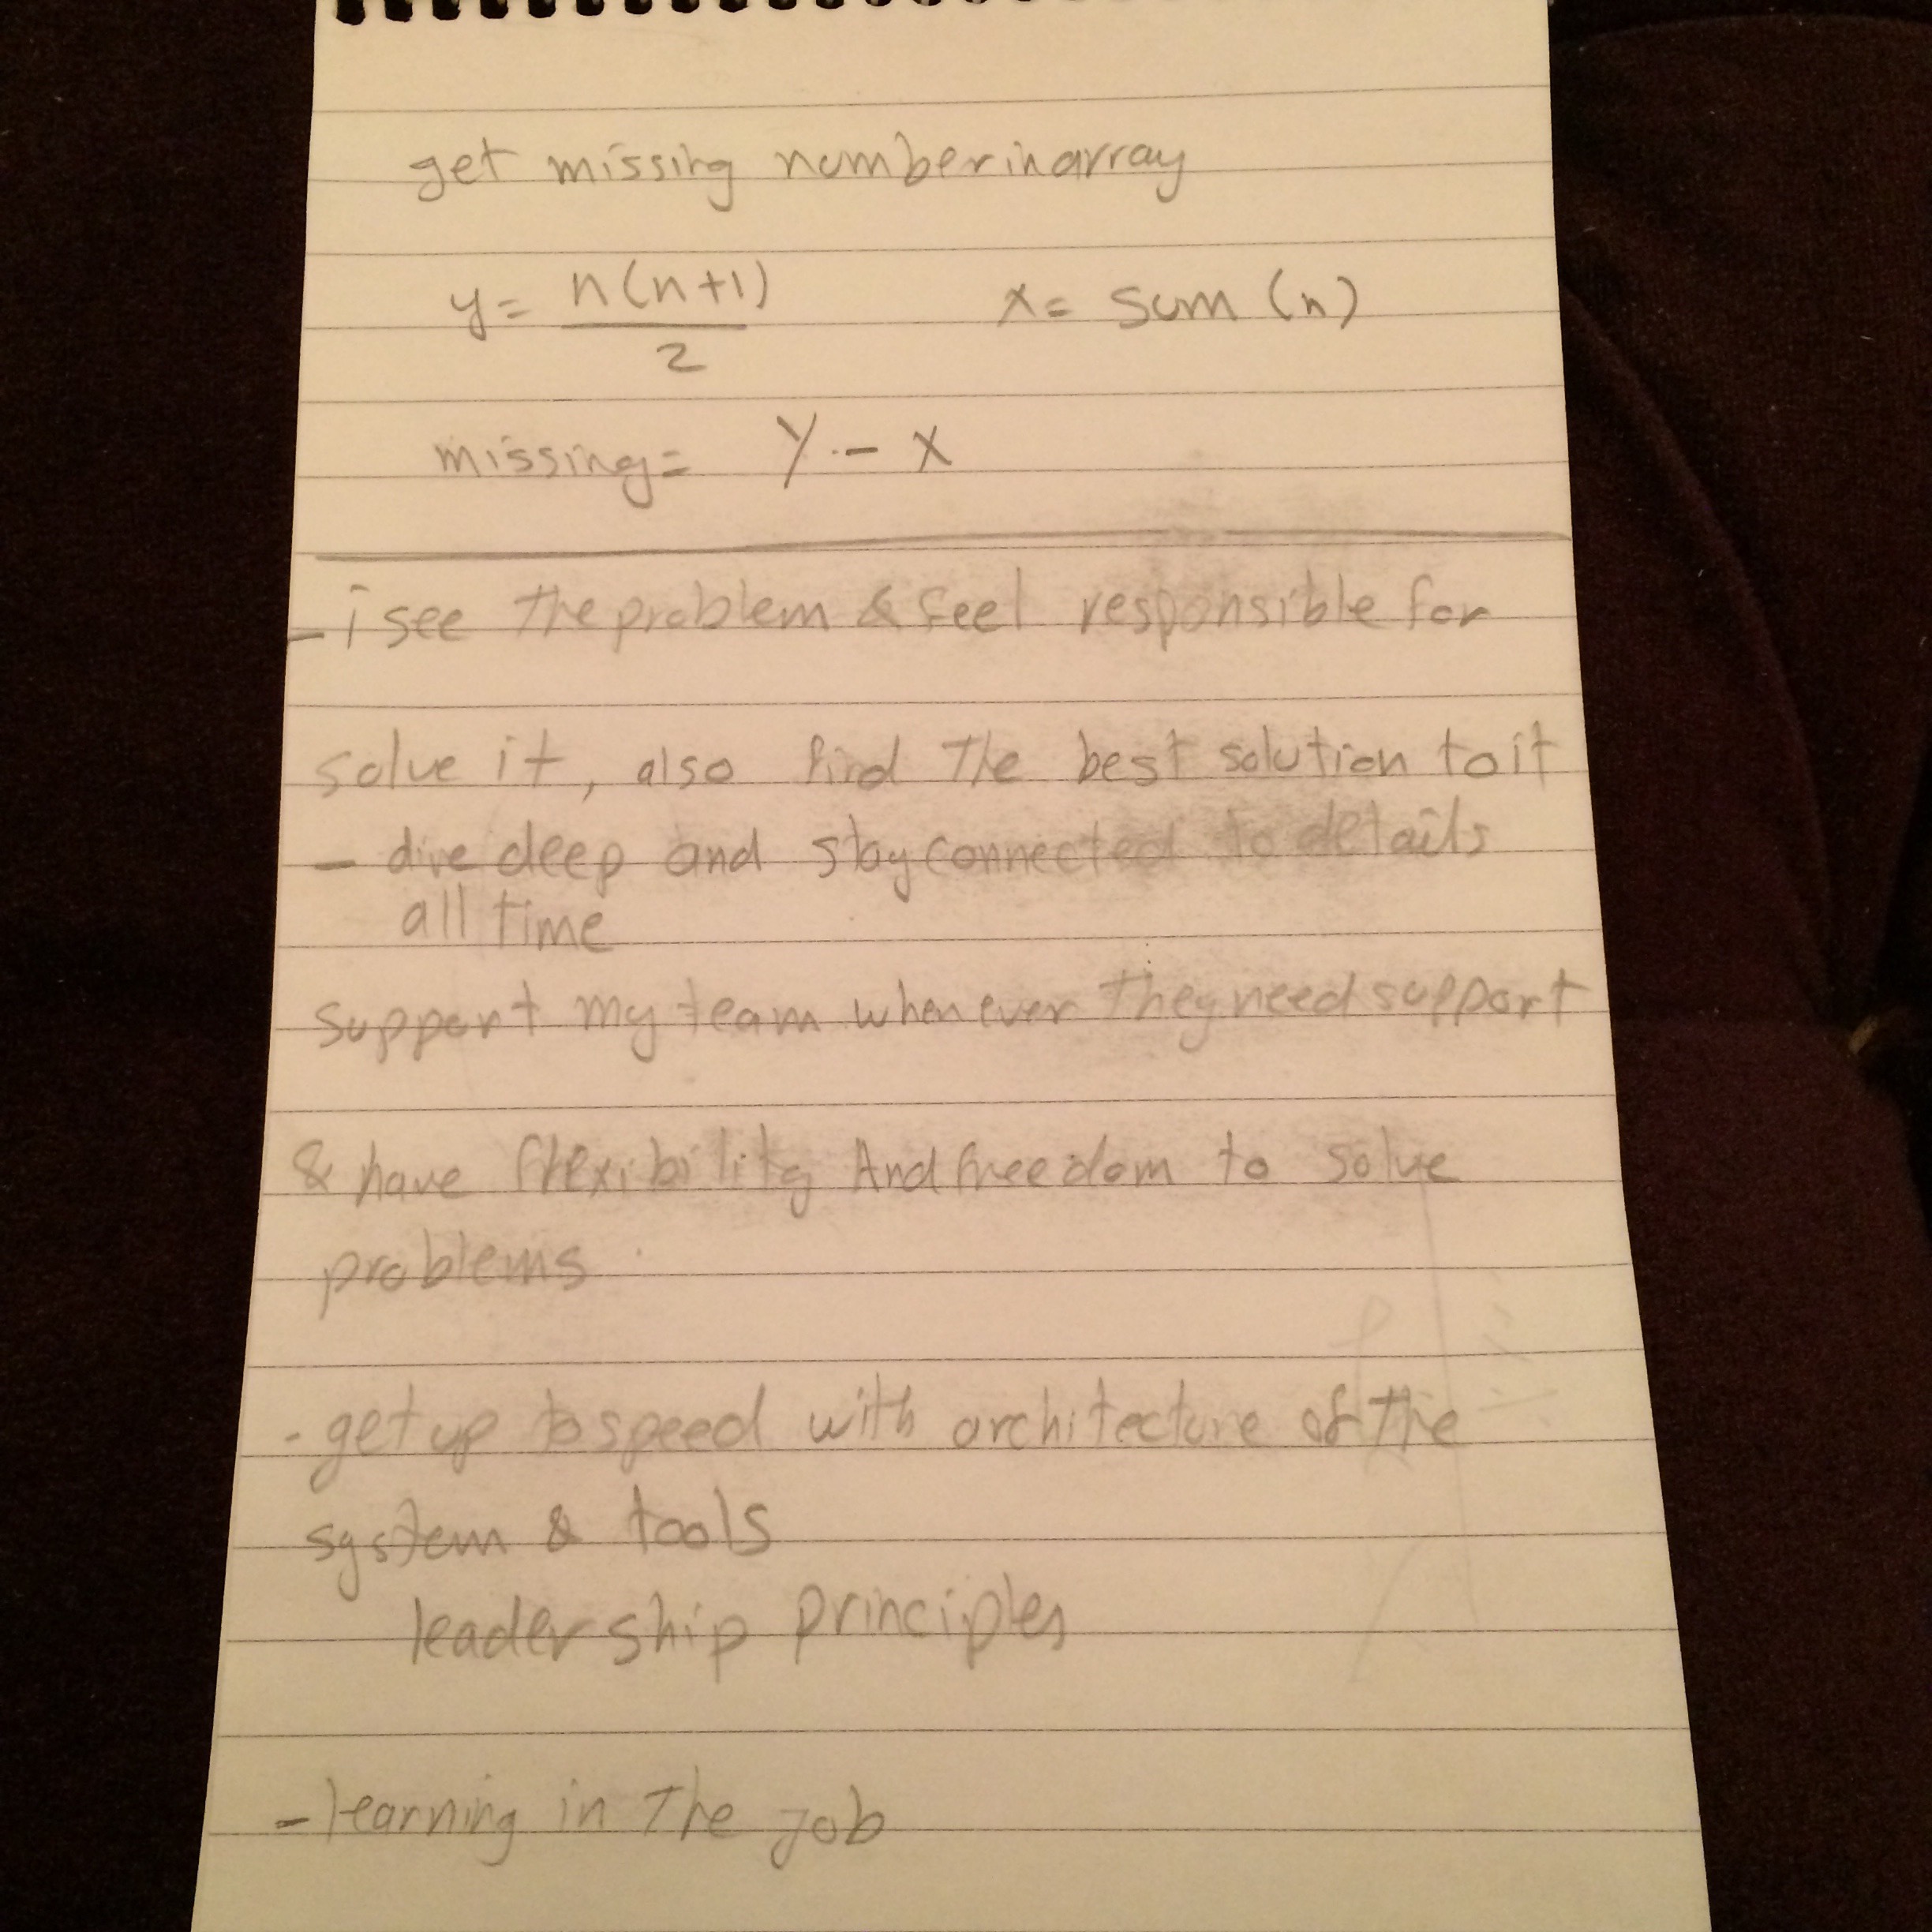 get missing number in array
y = n(n+1) / 2    x = sum (n)
missing = y - x
- i see the problem & feel responsible for
solve it, also find the best solution to it
- dive deep and stay connected to details
all time
support my team whenever they need support
& have flexibility And freedom to solve
problems
- get up to speed with architecture of the
system & tools
leadership principles
- learning in the job